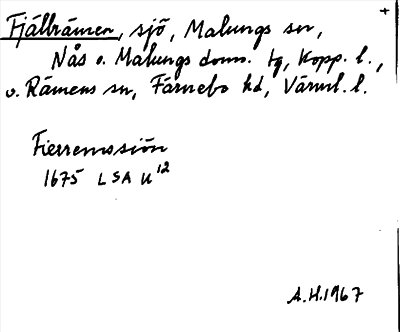 +
Fjällrämen, sjö, Malungs sn,
Nås o. Malungs doms. tg, Kopp. l.,
o. Rämens sn, Färnebo hd, Värml. l.
Fierremssiön
1675 LSA U¹²
A.H.1967